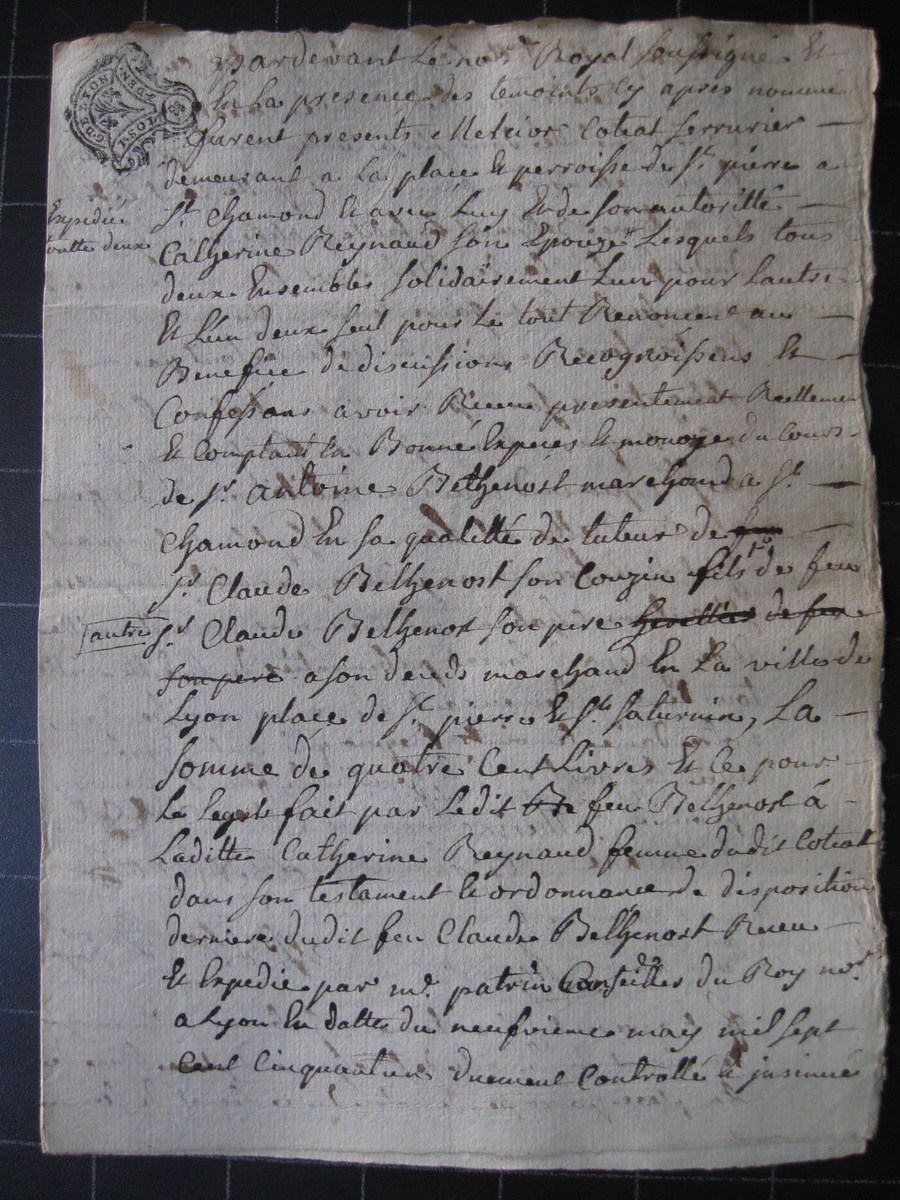 Pardevant Le nore Royal soussigné Et
En La presence des temoints Cy apres nommé
furent presents Melcior Cotiat serrurier
demeurant a La place Et perroisse de St pierre a
St Chamond Et avec Luy Et de son autoritté
Catherine Reynaud son Epouze Lesquels tous
deux Ensembles solidairement Lun pour Lautre
Et L'un deux seul pour Le tout Renoncent au
Benefice de discussions Recognoissens Et
Confessans avoir Receu presentement Reellement
Et Comptant En Bonne Especes Et monoye du Cours
de sr antoine Bethenost marchand a St
Chamond En sa qualitté de tuteur de
sr Claude Bethenost son Couzin fils de feu
autre sr Claude Bethenost son pere heritier de feu
son pere a son deceds marchand En La ville de
Lyon place de St pierre Et St saturnin, La
somme de quatre Cent Livres Et Ce pour
Le Legats fait par Ledit feu Bethenost á
Laditte Catherine Reynaud femme dudit Cotiat
dans son testament Et ordonnance de disposition
derniere dudit feu Claude Bethenost Receu
Et Expedié par me patrin Conseiller du Roy nore
a Lyon En datte du neufvieme may mil sept
Cent Cinquante un duement Controllé et insinué
Expedié
toutte deux
GDE LYON